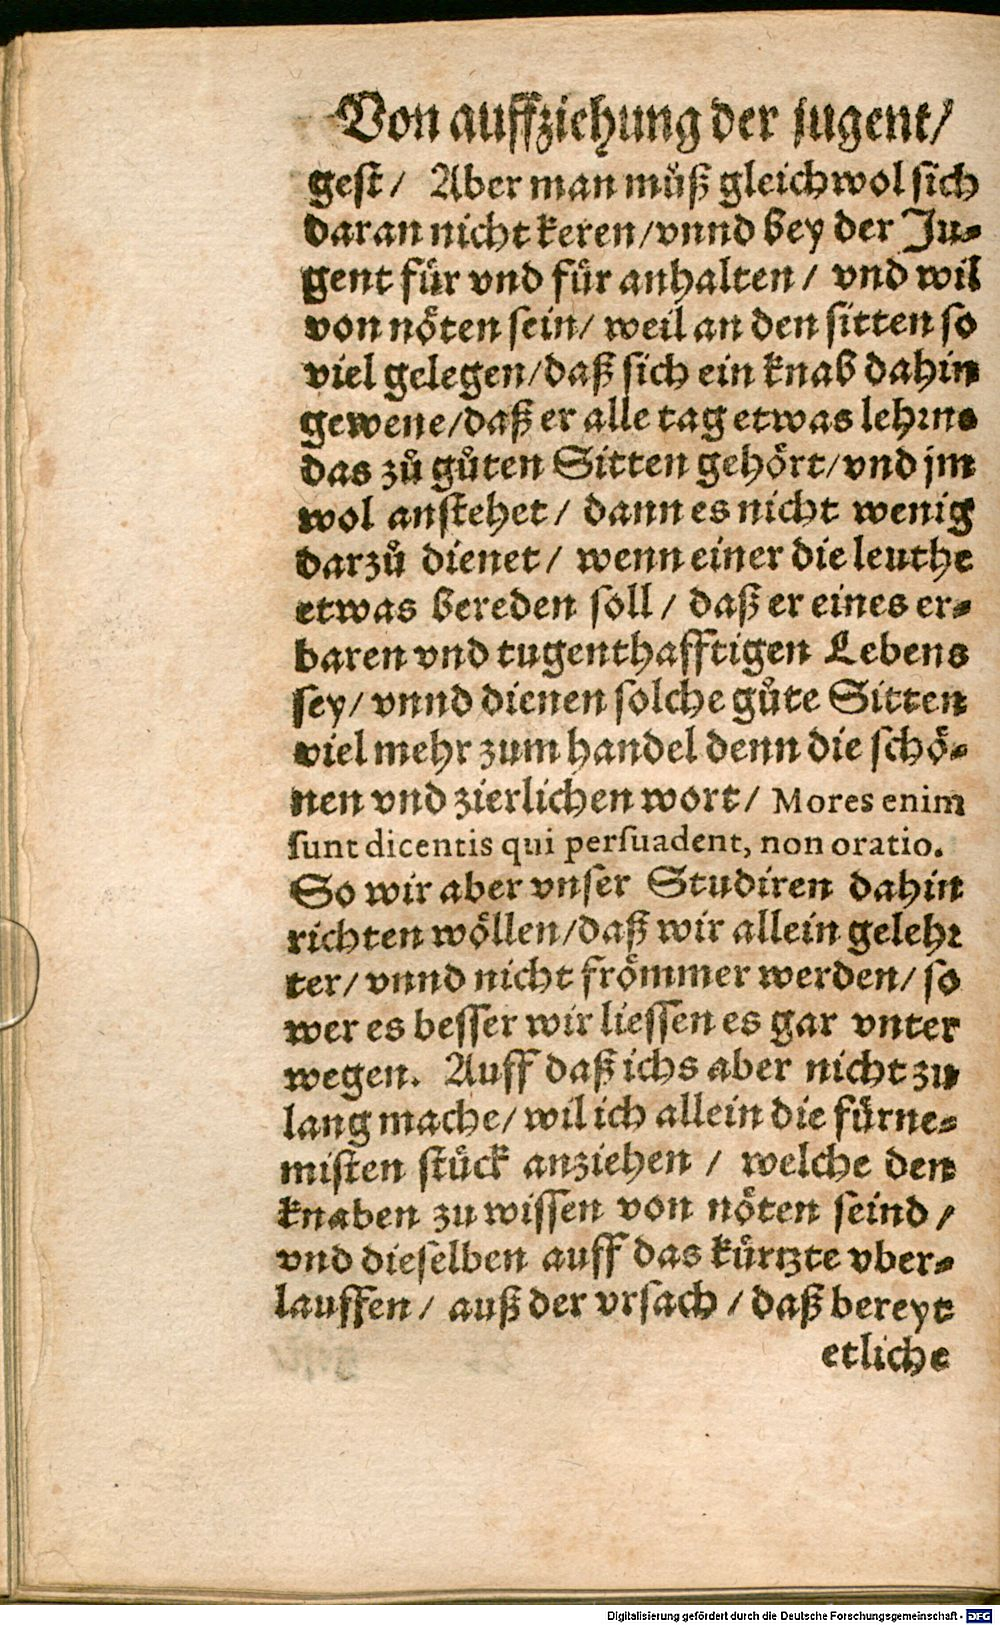 Von auffziehung der jugent/
gest/ Aber man muͤß gleichwol sich
daran nicht keren/vnnd bey der Ju⸗
gent fuͤr vnd fuͤr anhalten/ vnd wil
von noͤten sein/ weil an den sitten so
viel gelegen/daß sich ein knab dahin
gewene/daß er alle tag etwas lehrne
das zuͦ guͦten Sitten gehoͤrt/vnd jm
wol anstehet/ dann es nicht wenig
darzuͦ dienet/ wenn einer die leuthe
etwas bereden soll/ daß er eines er⸗
baren vnd tugenthafftigen Lebens
sey/ vnnd dienen solche guͦte Sitten
viel mehr zum handel denn die schoͤ⸗
nen vnd zierlichen wort/ Mores enim
sunt dicentis qui persuadent, non oratio.
So wir aber vnser Studiren dahin
richten woͤllen/daß wir allein gelehr
ter/ vnnd nicht froͤmmer werden/ so
wer es besser wir liessen es gar vnter
wegen. Auff daß ichs aber nicht zu
lang mache/ wil ich allein die fuͤrne⸗
misten stuͤck anziehen/ welche den
knaben zu wissen von noͤten seind/
vnd dieselben auff das kuͤrtzte vber⸗
lauffen/ auß der vrsach/ daß bereyt
etliche
Digitalisierung gefördert durch die Deutsche Forschungsgemeinschaft - DFG